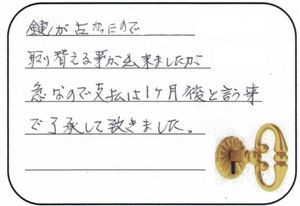 鍵が点かったので
取り替える事が出来ましたが
急なので支払は1ヶ月後と言う事
で了承して致きました。